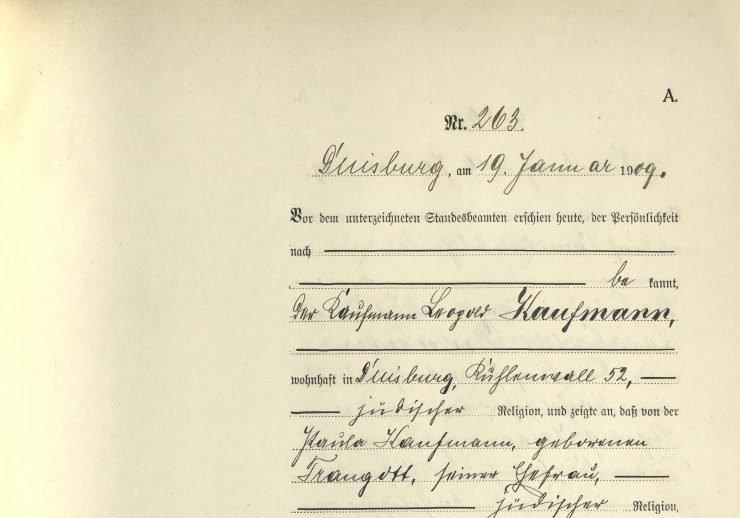 A.
Nr. 263.
Duisburg, am 19. Januar 1909.
Vor dem unterzeichneten Standesbeamten erschien heute, der Persönlichkeit
nach
be kannt,
der Kaufmann Leopold Kaufmann,
wohnhaft in Duisburg, Kuhlenwall 52,
jüdischer Religion, und zeigte an, daß von der
Paula Kaufmann, geborenen
Traugott, seiner Ehefrau,
jüdischer Religion,